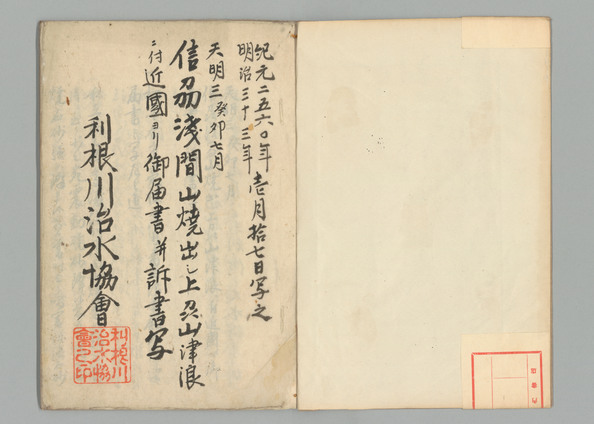 紀元二五六〇年
明治三十三年
壱月拾七日写之
天明三癸卯七月
信刕浅間山焼出シ上
山津浪
ニ付近國ヨリ御届書并訴書写
利根川治水協會
利根川
治水協
會之印